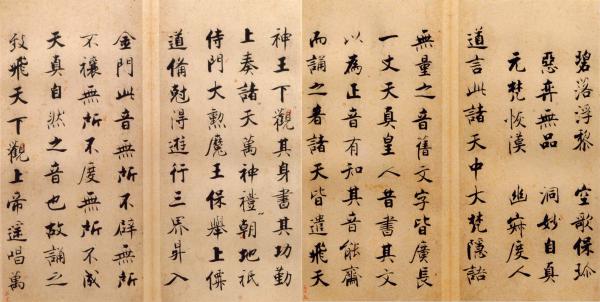 碧落浮黎　空歌保珎
惡弈無品　洞妙自真
元梵恢漠　幽寂度人
道言此諸天中大梵隱語
無量之音舊文字皆廣長
一丈天真皇人昔書其文
以為正音有知其音能齋
而誦之者諸天皆遣飛天
神王下觀其身書其功勤
上奏諸天萬神禮朝地祇
侍門大勳魔王保舉上僊
道備尅得遊行三界昇入
金門此音無所不辟無所
不禳無所不度無所不成
天真自然之音也故誦之
致飛天下觀上帝遙唱萬